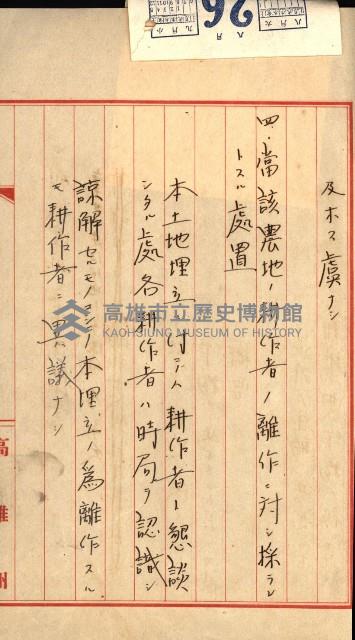 及ホス虞ナシ
四、當該農地ノ耕作者ノ離作ニ対シ採ラン
トスル處置
本土地埋立ニ付テハ耕作者ト懇談
シタル處各耕作者ハ時局ヲ認識シ
諒解セルモノニシテ本埋立ノ為離作スル
モ耕作者ニ異議ナシ
高雄州
高雄市立歷史博物館
KAOHSIUNG MUSEUM OF HISTORY
26